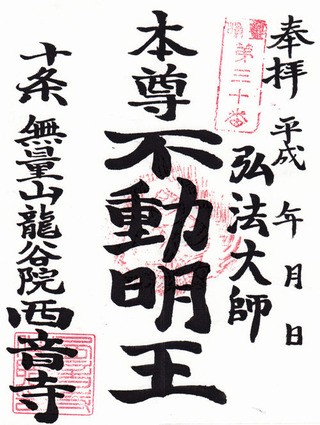 奉拝 平成 年 月 日
弘法大師
霊場
第三十番
本尊不動明王
十条 無量山龍谷院西音寺